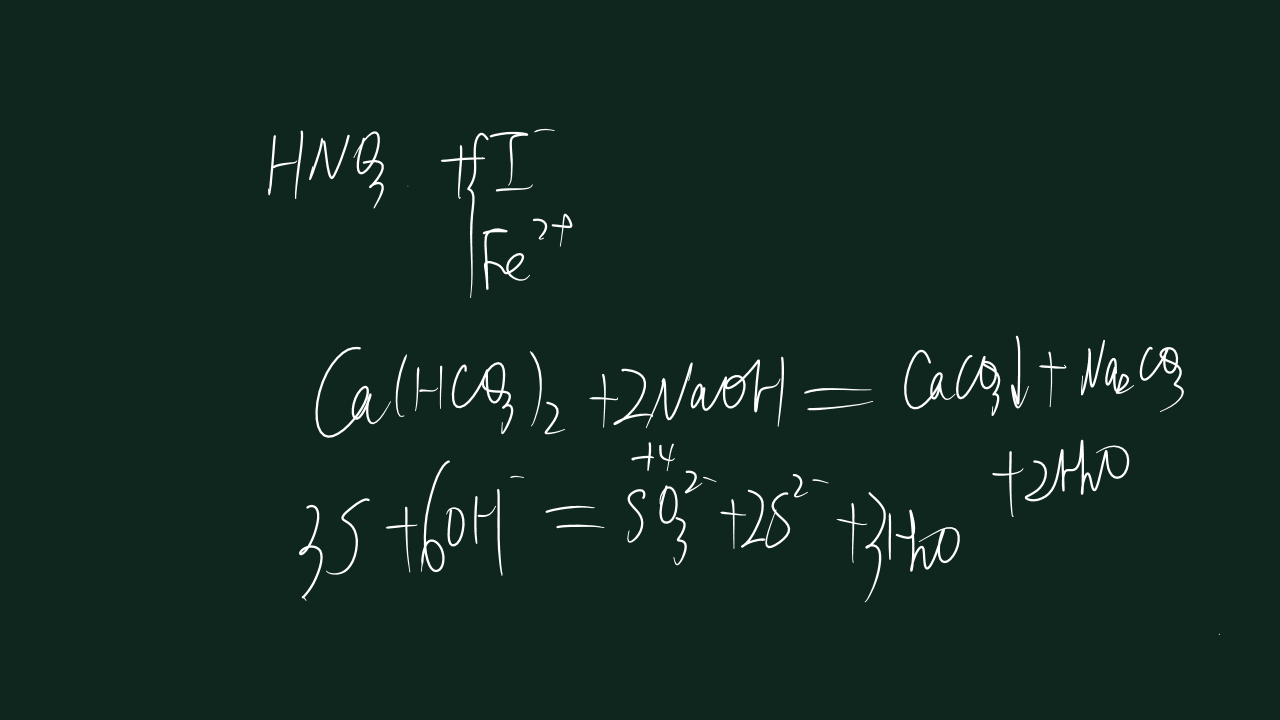 HNO₃ + { I⁻
Fe²⁺
Ca(HCO₃)₂ + 2NaOH = CaCO₃↓ + Na₂CO₃
+ 2H₂O
+4
3S + 6OH⁻ = SO₃²⁻ + 2S²⁻ + 3H₂O